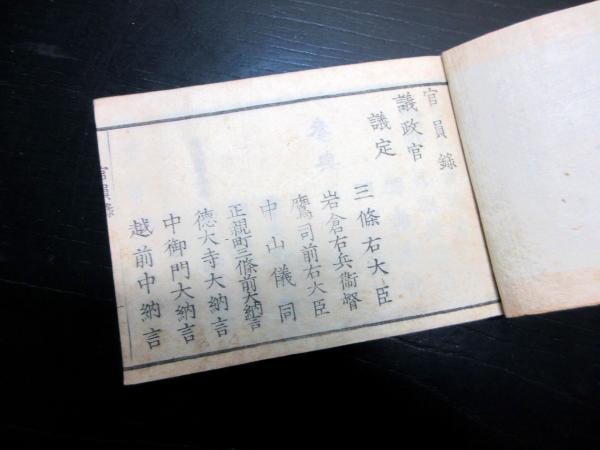 官員錄
議政官
議定
三條右大臣
岩倉右兵衞督
鷹司前右大臣
中山儀同
正親町三條前大納言
德大寺大納言
中御門大納言
越前中納言
官員錄